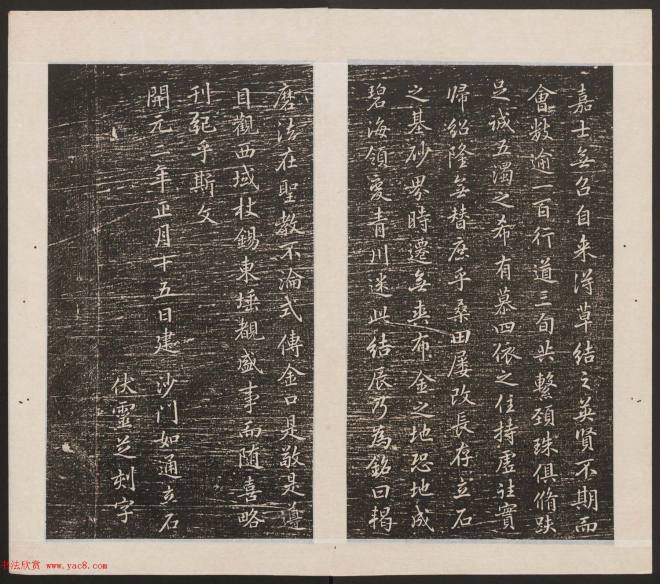 嘉士無召自来得草結之英賢不期而
會数逾一百行道三旬共繫頚珠俱脩趺
足誠五濁之希有慕四依之住持虛往實
歸紹隆無替庶乎桑田屡改長存立石
之基砂界時遷無爽布金之地恐地成
碧海領變青川迷此結辰乃為銘曰羯
磨法在聖教不淪式傳金口是敬是遵
目觀西域杖錫東埵覩盛事而随喜略
刊紀乎斯文
開元二年正月十五日建 沙门如通立石
伏靈芝刻字
书法欣赏 www.yac8.com